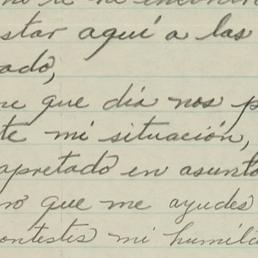 star aquí a las
ado,
que día nos p
te mi situación,
apretado en asunto
ro que me ayudes
contestes mi humild